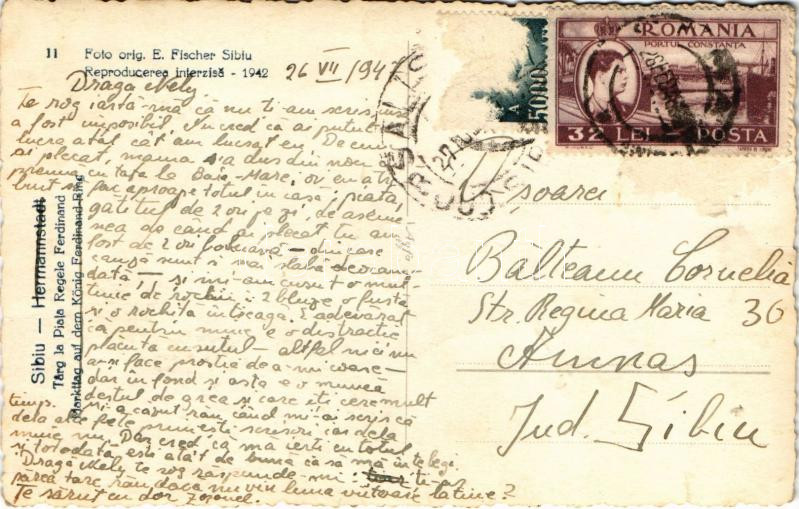 11 Foto orig. E. Fischer Sibiu
Reproducerea interzisă - 1942
26 VII/947
Draga Nely,
Te rog iartă-mă că nu ti-am scris, însă
a fost imposibil. Nu cred că ai putut
lucra atât cât am lucrat eu. De cum
ai plecat, mama s'a dus din nou a
cu tata la Baia-Mare, ori eu a
bui să fac aproape totul în casă, piață,
gătitul de 2 ori pe zi, de aseme-
nea de când ai plecat tu am
fost de 2 ori bolnavă - din care
cauză sunt și mai slabă deocam-
dată, - și mi-am cusut o mul-
time de rochii: 2 bluze o fustă
și o rochită întreagă. E adevărat
că pentru mine e o distractie
plăcută cusutul - altfel nici nu
aș face prostia de a-mi coase -
dar în fond și asta e o muncă
destul de grea și care îti cere mult
timp. Mi-a căzut rău când mi-ai scris că
dela alte fete primești scrisori iar dela
mine nu. Dar cred că mă ierti cu totul
și totodată ești atât de bună ca să mă întelegi.
Dragă Nely te rog răspunde-mi: ti-ar
părea tare rău, dacă nu vin luna viitoare la tine?
Te sărut cu dor
Sibiu — Hermannstadt
Târg la Piața Regele Ferdinand
Markttag auf dem König Ferdinand-Ring
5000
ROMANIA
PORTUL CONSTANTA
32 LEI POSTA
D-șoarei
Balteanu Cornelia
Str. Regina Maria 36
Amnas
Jud. Sibiu